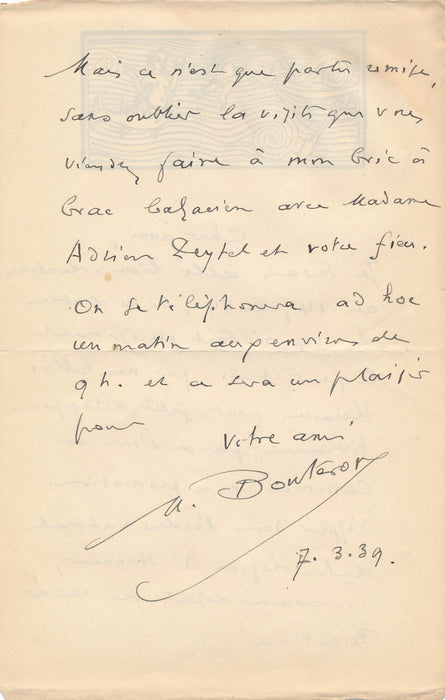 Mais ce n'est que partie remise,
sans oublier la visite que vous
viendrez faire à mon bric à
brac balzacien avec Madame
Adrien Peytel et votre fieu.
On se téléphonera ad hoc
un matin aux environs de
9h. et ce sera un plaisir
pour votre ami,
M. Bouteron
7.3.39.